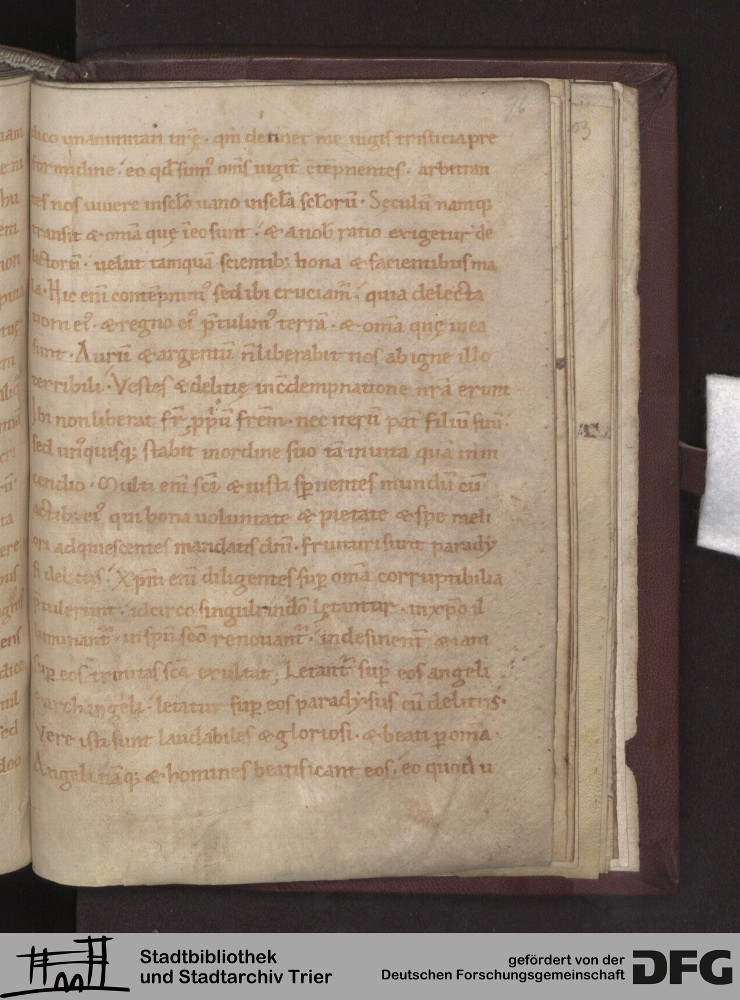 76
53
dico unanimitati urę · qm̄ detinet me iugis tristicia pre
formidine · eo qđ sim᷒ om̄s iugit̄ c̄tēpnentes · arbitran
tes nos uiuere in sc̄lo uano in sc̄la sc̄lorū · Sęculū namq;
transit & om̄a quę ī eo sunt · & a nob̄ ratio exigetur de
lictorū · uelut tamquā scientib; bona & facientibus ma
la · Hic enī contēpnim᷒ sed ibi cruciam̄ · quia delecta
tioni ei᷒ · & regno ei᷒ p̄tulim᷒ terrā · & om̄a quę in ea
sunt · Aurū & argentū n̄ liberabit nos ab igne illo
terribili · Vestes & delitię in c̄dempnatione nr̄a erunt
Ibi non liberat fr̄ ppū frēm · nec iterū pat̄ filiū suū ·
sed un᷒quisq; stabit in ordine suo tā in uita quā in in
cendio · Multi enī sc̄i & iusti sp̄nentes mundū cū
actib; ei᷒ qui bona uoluntate & pietate & spe meli
ori adquiescentes mandatis dn̄i · fruituri sunt parady
si delitiis · Xp̄m enī diligentes sup̄ om̄a corruptibilia
p̄tulerunt · idcirco singuli in dō lętantur · in xp̄o il
luminant᷒ · in sp̄u sc̄o renouant᷒ · indesinent̄ & iam
sup̄ eos trinitas sc̄a exultat; Letant᷒ sup̄ eos angeli
& archangeli · letatur sup̄ eos paradysus cū delitiis ·
Vere isti sunt laudabiles & gloriosi · & beati p om̄a ·
Angeli nāq; & homines beatificant eos · eo quod u
Stadtbibliothek
und Stadtarchiv Trier
gefördert von der
Deutschen Forschungsgemeinschaft
DFG